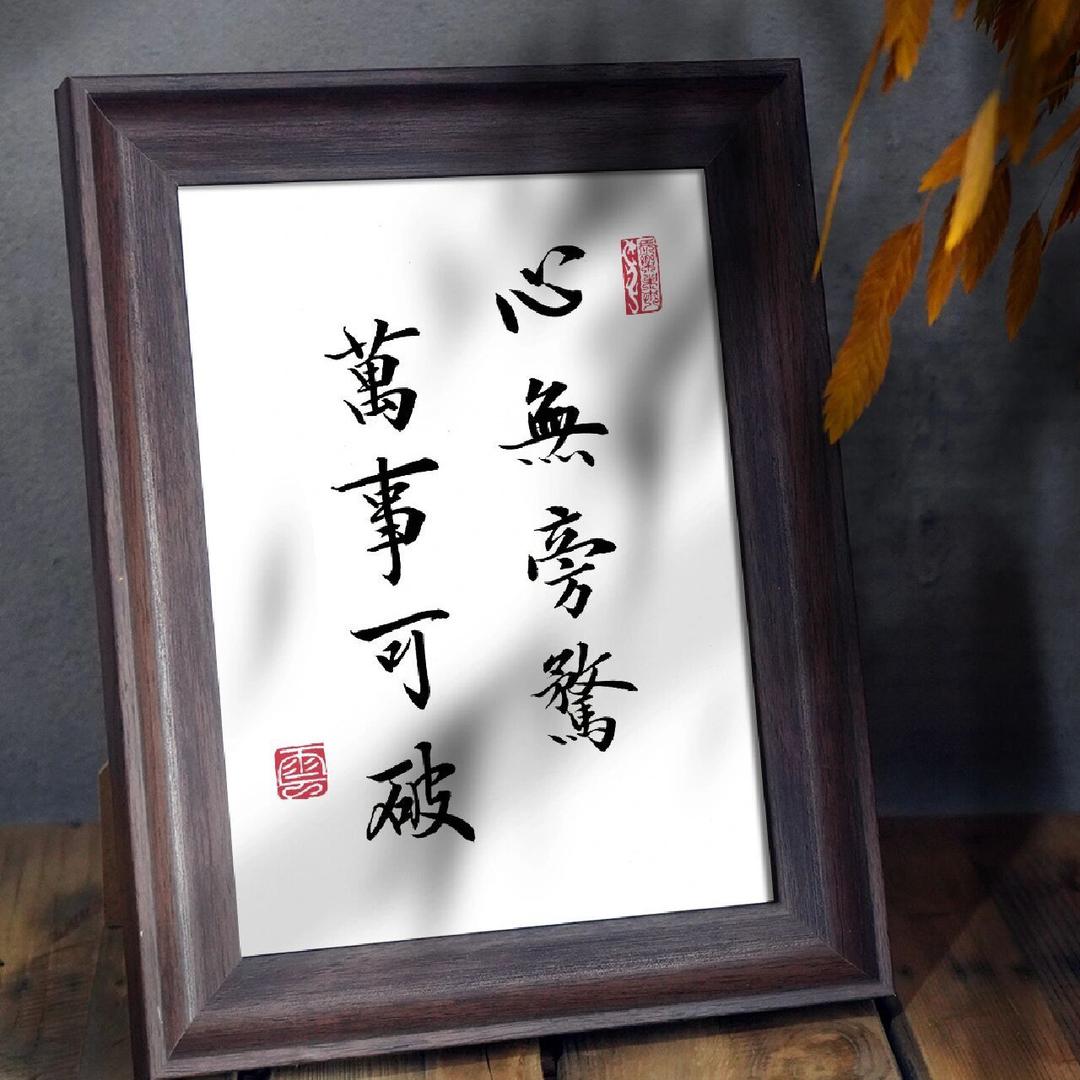 心無旁騖
萬事可破